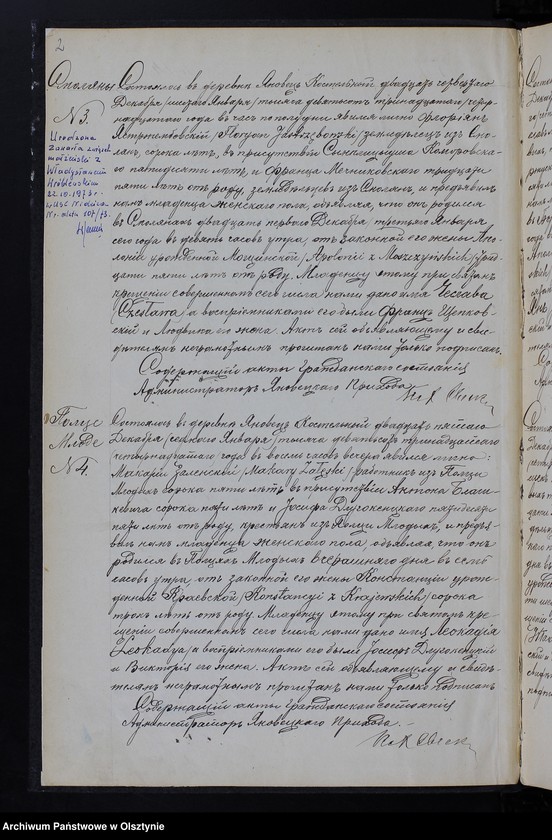 2
Смоляны
№ 3.
Urodzona
zawarła związek
małżeński z
Władysławem
Wróblewskim
22.10.1933 r.
w USC Nidzica
Nr. aktu 107/73.
Состоялось въ деревнѣ Яновецъ Костельной двадцать четвертаго
Декабря /шестаго Января/ тысяча девятьсотъ тринадцатаго /четыр-
надцатаго года въ часъ по полудни явился лично Флоріянъ
Ястржембовскій /Floryan Jastrzębowski/ земледѣлецъ изъ Смо-
лянъ, сорока лѣтъ, въ присутствіи Коморовска-
го пятидесяти лѣтъ, и Франца Мечниковскаго тридцати
пяти лѣтъ отъ роду, земледѣльцевъ изъ Смолянъ, и предъявилъ
намъ младенца женскаго пола, объявляя, что онъ родился
въ Смолянахъ двадцать перваго Декабря /третьяго Января
сего года въ девять часовъ утра, отъ законной его жены Апо-
лоніи урожденной Мощинской /Apolonii z Moszczyńskich/ трид-
цати пяти лѣтъ отъ роду. Младенцу этому при святомъ
крещеніи совершенномъ сего числа нами дано имя Чеслава
/Czesława/ а воспріемниками его были Францъ Щепков-
скій и Людвика его жена. Актъ сей объявляющему и сви-
дѣтелямъ неграмотнымъ прочитанъ нами только подписанъ.
Содержащій акты гражданскаго состоянія
Администраторъ Яновецкаго Прихода
Польце
Млоде
№ 4.
Состоялось въ деревнѣ Яновецъ Костельной двадцать пятаго
Декабря /седьмого Января/ тысяча девятьсотъ тринадцатаго
/четырнадцатаго года въ восемь часовъ вечера явился лично:
Макарій Заленскій /Makary Załęski/ работникъ изъ Польцъ
Млодыхъ сорока пяти лѣтъ въ присутствіи Антона Блаш-
кевича сорока пяти лѣтъ и Іосифа Длугокенцкаго пятидесяти
пяти лѣтъ отъ роду, крестьянъ изъ Польцъ Млодыхъ, и предъя-
вилъ намъ младенца женскаго пола, объявляя, что онъ
родился въ Польцахъ Млодыхъ вчерашняго дня въ семь
часовъ утра, отъ законной его жены Констанціи урож-
денной Краевской /Konstancyi z Krajewskich/ сорока
трехъ лѣтъ отъ роду. Младенцу этому при святомъ кре-
щеніи совершенномъ сего числа нами дано имя Леокадія
/Leokadya/ а воспріемниками его были Іосифъ Длугокенцкій
и Викторія его жена. Актъ сей объявляющему и свидѣ-
телямъ неграмотнымъ прочитанъ нами только подписанъ
Содержащій акты гражданскаго состоянія
Администраторъ Яновецкаго Прихода.
Archiwum Państwowe w Olsztynie